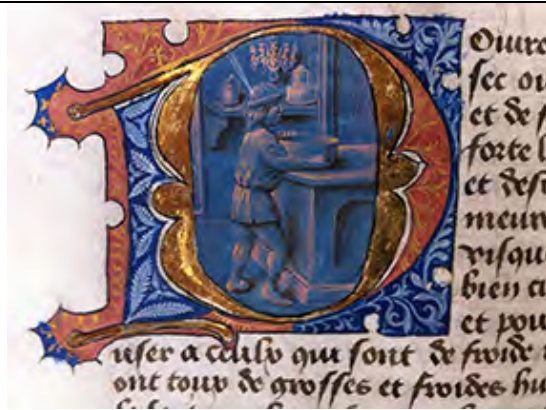 Poiure
sec ou
et de s
forte l
et dess
meure
visque
bien cu
et pou
user a ceulx qui sont de froide
ont toux de grosses et froides hu